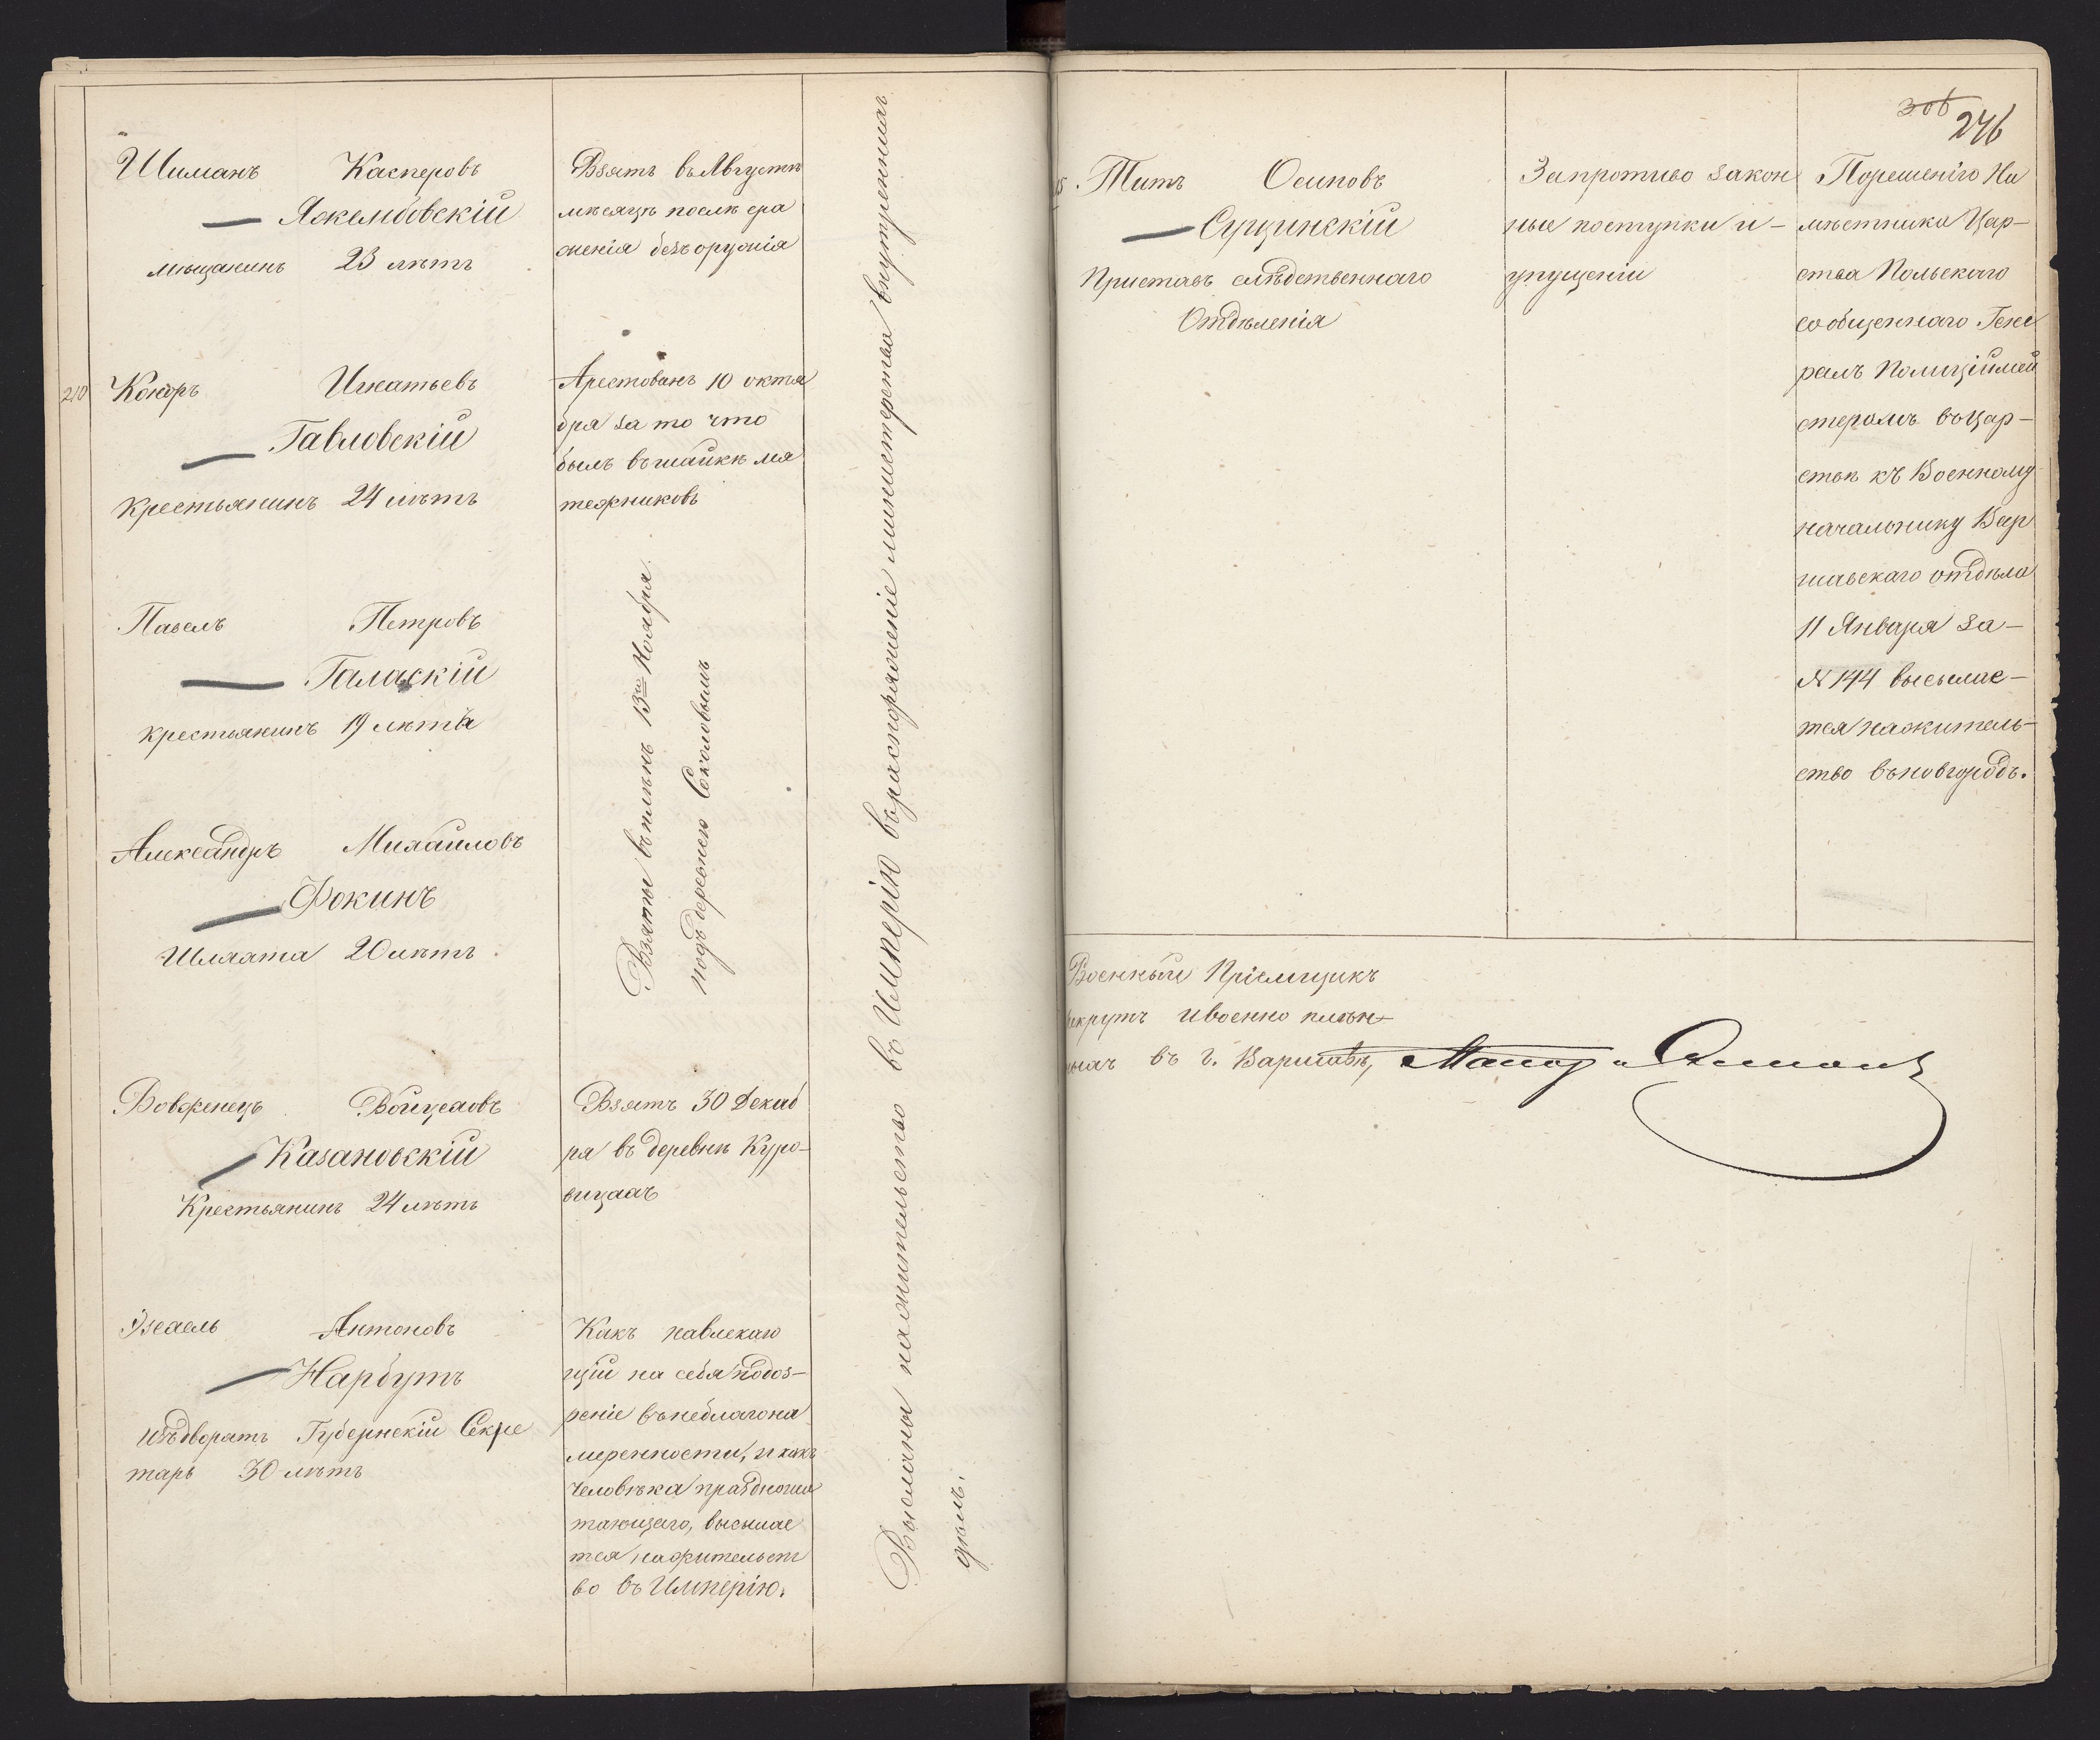 Шиманъ Касперовъ
Яжембовскій
мѣщанинъ 23 лѣтъ
Взятъ въ Августѣ
мѣсяцѣ послѣ сра
женія безъ оружія
210
Игнатьевъ
Гавловскій
крестьянинъ 24 лѣтъ
Арестованъ 10 октя
бря за то что
былъ въ шайкѣ мя
тежниковъ
Павелъ Петровъ
Галаскій
крестьянинъ 19 лѣтъ
Александръ Михайловъ
Фокинъ
Шляхта 20 лѣтъ
Взяты въ плѣнъ 13го Ноября
подъ деревнею Соколовымъ
Казановскій
Крестьянинъ 24 лѣтъ
Взятъ 30 Декаб
ря въ деревнѣ Куро-
вицахъ
Антоновъ
Нарбутъ
изъ дворянъ Губернскій Секре
тарь 30 лѣтъ
Какъ навлекаю
щій на себя подоз-
реніе въ неблагона
меренности, и какъ
человѣка праздноша
тающаго, высылае
тся на жительст
во въ Имперію.
Высланы на жительство въ Имперію въ распоряженіе министерства внутреннихъ
дѣлъ.
306
246
Титъ Осиповъ
Сущинскій
Приставъ слѣдственнаго
Отдѣленія
За противо закон
ные поступки и -
упущеніи
По решенію На
мѣстника Цар-
ства Польскаго
сообщеннаго Гене
ралъ Полиціймей
стеромъ въ Цар-
ствѣ къ Военному
начальнику Вар
шавскаго отдѣла
11 Января за-
№ 144 высылае-
тся на житель-
ство въ Новгородъ.
Военный Пріемщикъ
рекрутъ и военно плѣн-
ныхъ въ г. Варшавѣ,